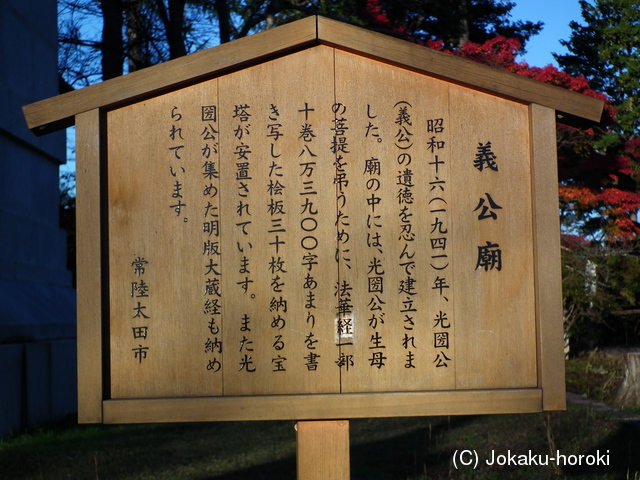 義公廟
昭和十六(一九四一)年、光圀公
(義公)の遺徳を忍んで建立されま
した。廟の中には、光圀公が生母
の菩提を弔うために、法華経一部
十巻八万三九〇〇字あまりを書
き写した桧板三十枚を納める宝
塔が安置されています。また光
圀公が集めた明版大蔵経も納め
られています。
常陸太田市
(C) Jokaku-horoki